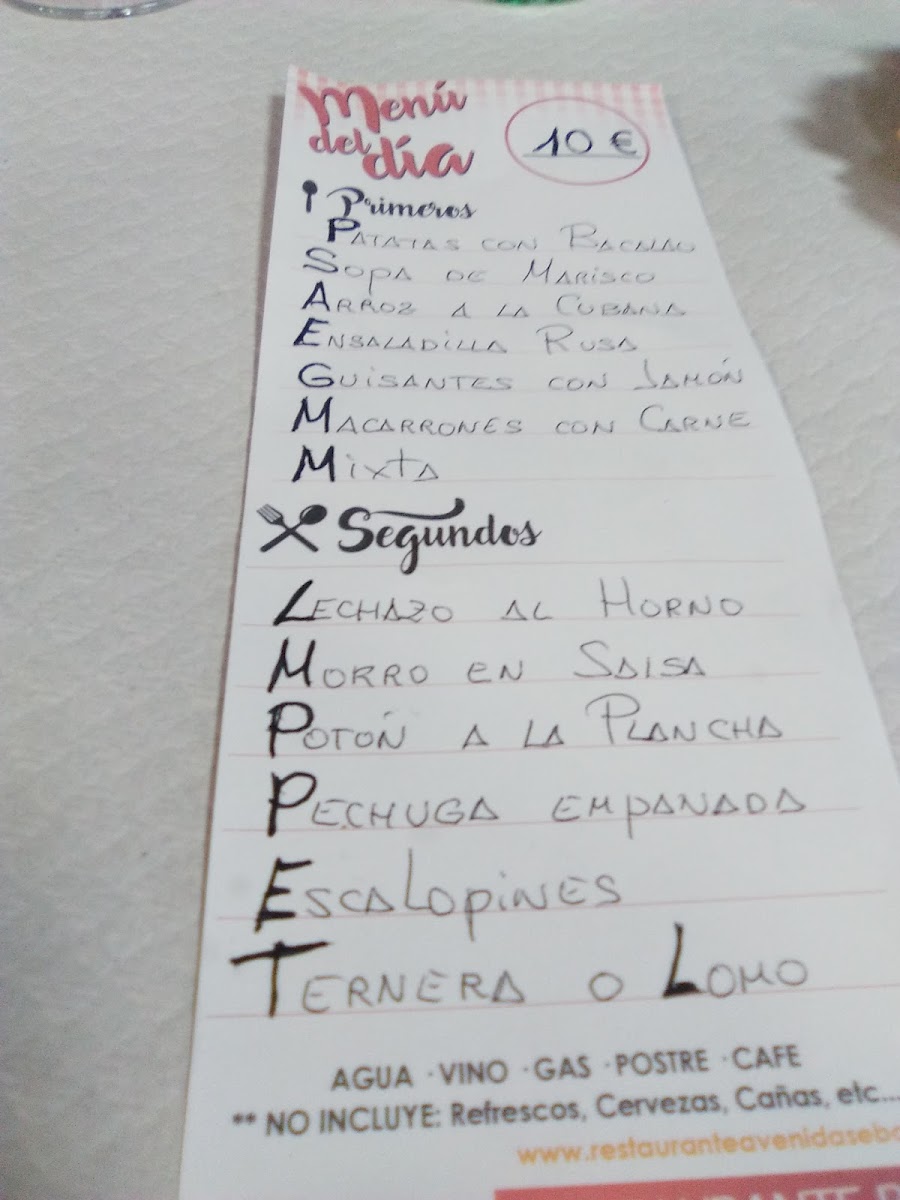 Menú
del día
10 €
Primeros
PATATAS CON BACALAO
SOPA DE MARISCO
ARROZ A LA CUBANA
ENSALADILLA RUSA
GUISANTES CON JAMÓN
MACARRONES CON CARNE
MIXTA
Segundos
LECHAZO AL HORNO
MORRO EN SALSA
POTÓN A LA PLANCHA
PECHUGA EMPANADA
ESCALOPINES
TERNERA O LOMO
AGUA · VINO · GAS · POSTRE · CAFE
** NO INCLUYE: Refrescos, Cervezas, Cañas, etc...
www.restauranteavenidaseb